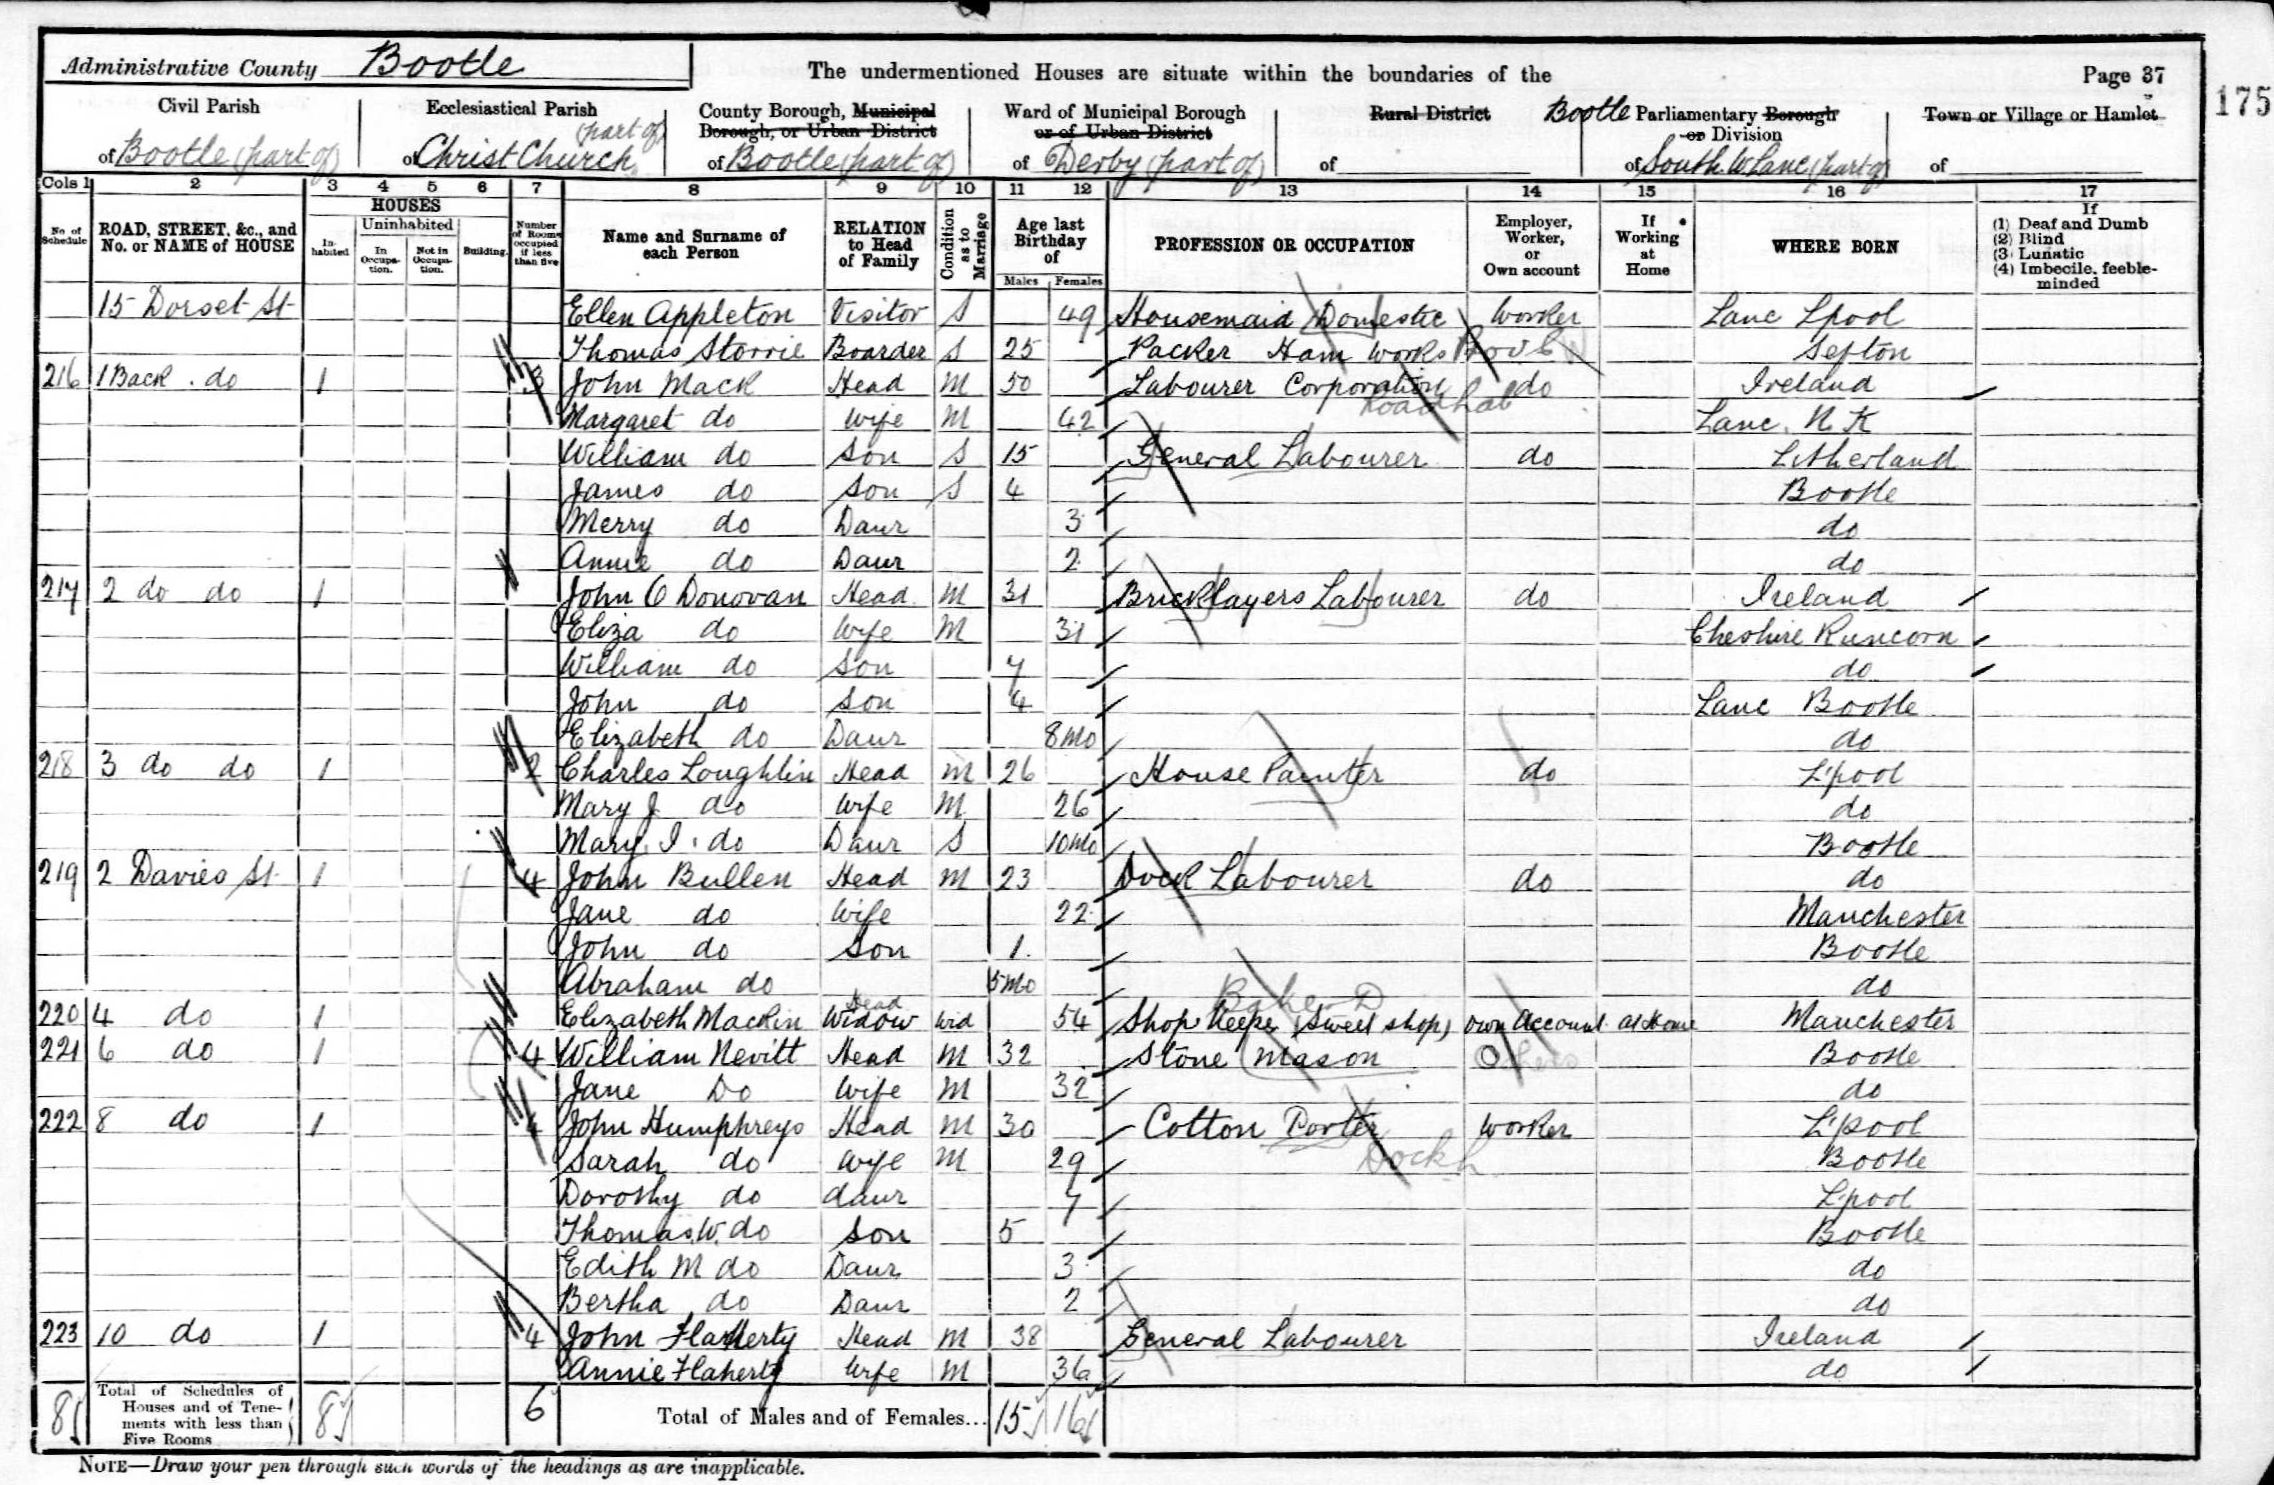 Administrative County Bootle
The undermentioned Houses are situate within the boundaries of the
Page 37
175
Civil Parish of Bootle (part of)
Ecclesiastical Parish of Christ Church (part of)
County Borough, Municipal Borough, or Urban District of Bootle (part of)
Ward of Municipal Borough or of Urban District of Derby (part of)
Rural District of
Bootle Parliamentary Borough or Division of South W Lanc (part of)
Town or Village or Hamlet of
Cols 1 2 3 4 5 6 7 8 9 10 11 12 13 14 15 16 17
No of Schedule
ROAD, STREET, &c., and No. or NAME of HOUSE
HOUSES
Inhabited
Uninhabited
In Occupation.
Not in Occupation.
Building.
Number of Rooms occupied if less than five
Name and Surname of each Person
RELATION to Head of Family
Condition as to Marriage
Age last Birthday of
Males Females
PROFESSION OR OCCUPATION
Employer, Worker, or Own account
If Working at Home
WHERE BORN
If
(1) Deaf and Dumb
(2) Blind
(3) Lunatic
(4) Imbecile, feeble-minded
15 Dorset St Ellen Appleton Visitor S 49 Housemaid Domestic Worker Lanc Lpool
Thomas Storrie Boarder S 25 Packer Ham Works Sefton
216 1 Back do 1 3 John Mack Head M 50 Labourer Corporation do Ireland
Road Lab
Margaret do Wife M 42 Lanc. N.K
William do Son S 15 General Labourer do Litherland
James do Son S 4 Bootle
Merry do Daur 3 do
Annie do Daur 2 do
217 2 do do 1 John O Donovan Head M 31 Bricklayers Labourer do Ireland
Eliza do Wife M 31 Cheshire Runcorn
William do Son 7 do
John do Son 4 Lanc Bootle
Elizabeth do Daur 8 Mo do
218 3 do do 1 2 Charles Loughlin Head M 26 House Painter do L'pool
Mary J do Wife M 26 do
Mary I. do Daur S 10 Mo Bootle
219 2 Davies St 1 4 John Bullen Head M 23 Dock Labourer do do
Jane do Wife 22 Manchester
John do Son 1 Bootle
Abraham do 5 Mo do
Head
Baker D
220 4 do 1 Elizabeth Mackin Widow Wid 54 Shop Keeper (Sweet shop) Own Account at Home Manchester
221 6 do 1 4 William Nevitt Head M 32 Stone Mason Others Bootle
Jane Do Wife M 32 do
222 8 do 1 4 John Humphreys Head M 30 Cotton Porter Worker L'pool
Sarah do Wife M 29 Dock L Bootle
Dorothy do daur 7 L'pool
Thomas W. do Son 5 Bootle
Edith M do Daur 3 do
Bertha do Daur 2 do
223 10 do 1 4 John Flaherty Head M 38 General Labourer Ireland
Annie Flaherty Wife M 36 do
8 Total of Schedules of Houses and of Tenements with less than Five Rooms 8 6 Total of Males and of Females... 15 16
NOTE—Draw your pen through such words of the headings as are inapplicable.